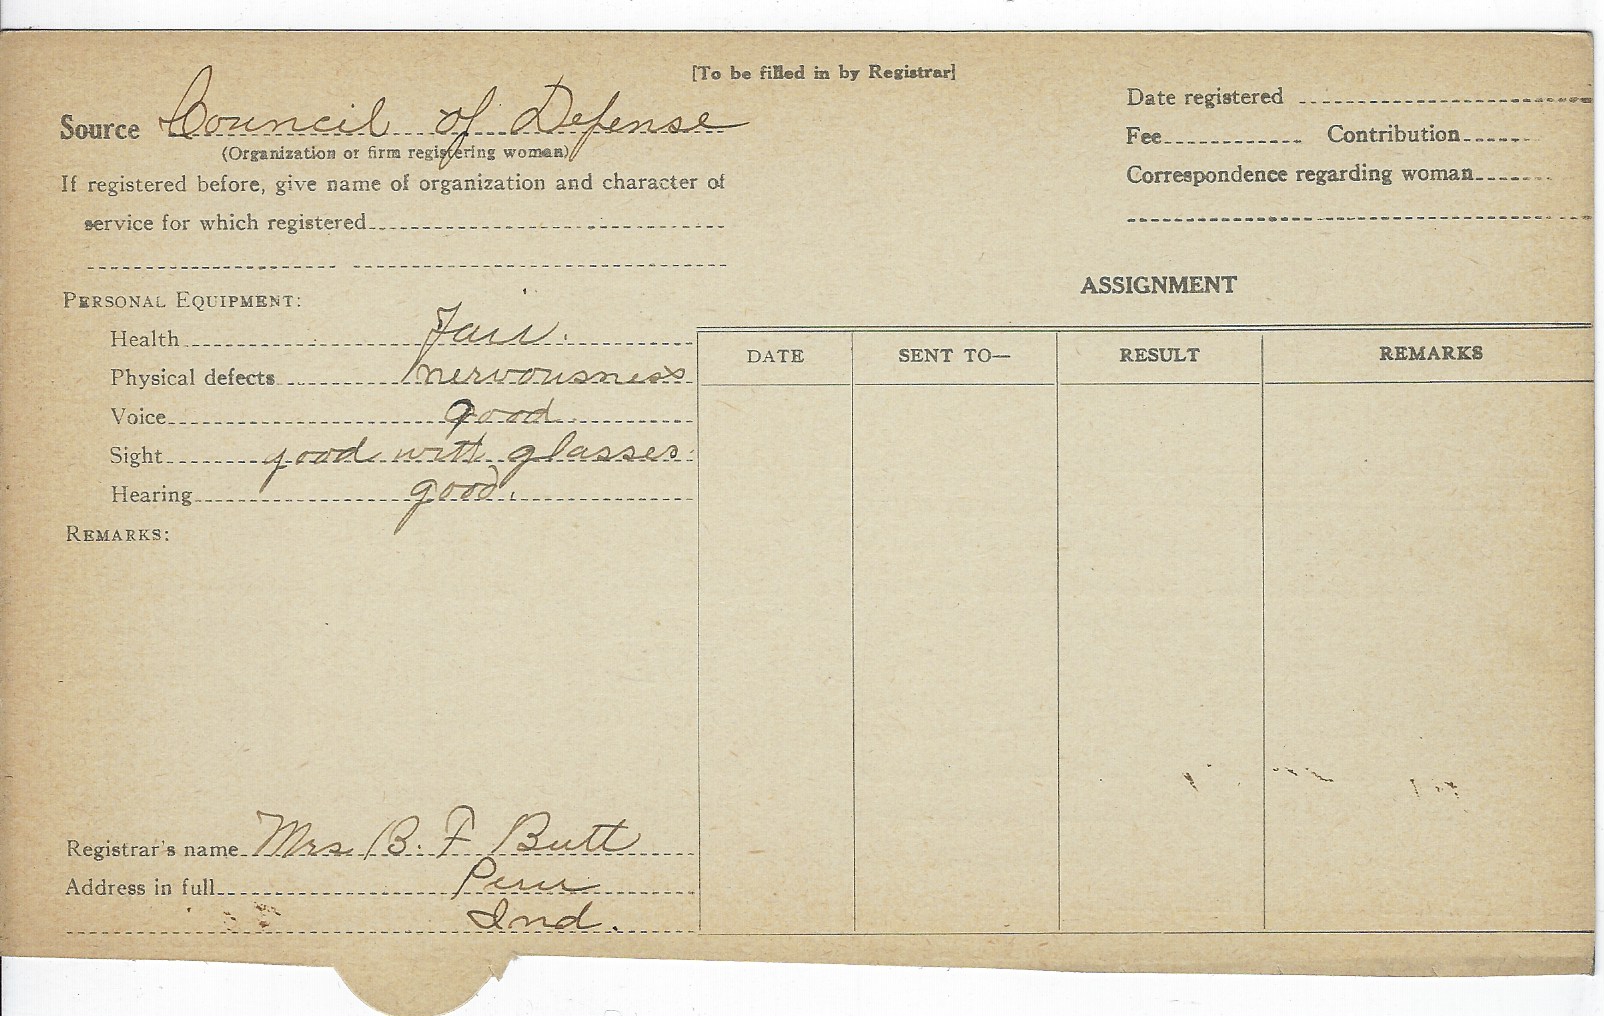 [To be filled in by Registrar]
Source Council of Defense
(Organization or firm registering woman)
If registered before, give name of organization and character of
service for which registered
Date registered
Fee Contribution
Correspondence regarding woman
PERSONAL EQUIPMENT:
Health Fair.
Physical defects nervousness
Voice good
Sight good with glasses
Hearing good.
REMARKS:
ASSIGNMENT
DATE SENT TO— RESULT REMARKS
Registrar's name Mrs. B. F Butt
Address in full Peru
Ind.